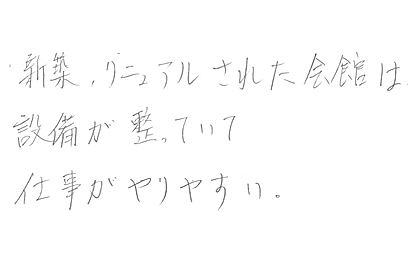 新築,リニュアルされた会館は、
設備が整っていて
仕事がやりやすい。